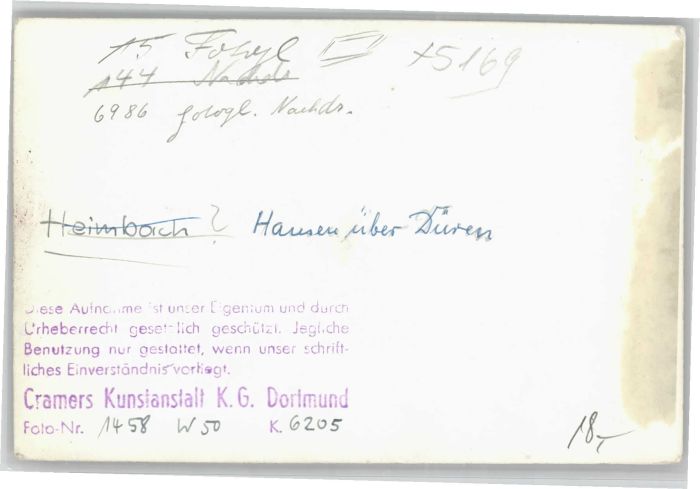 15 Fovgl +5169
144 Nachdr
6986 fotogl. Nachdr.
Heimbach ? Hausen über Düren
Diese Aufnahme ist unser Eigentum und durch
Urheberrecht gesetzlich geschützt. Jegliche
Benutzung nur gestattet, wenn unser schrift-
liches Einverständnis vorliegt.
Cramers Kunstanstalt K.G. Dortmund
Foto-Nr. 1458 W50 K. 6205
18,-